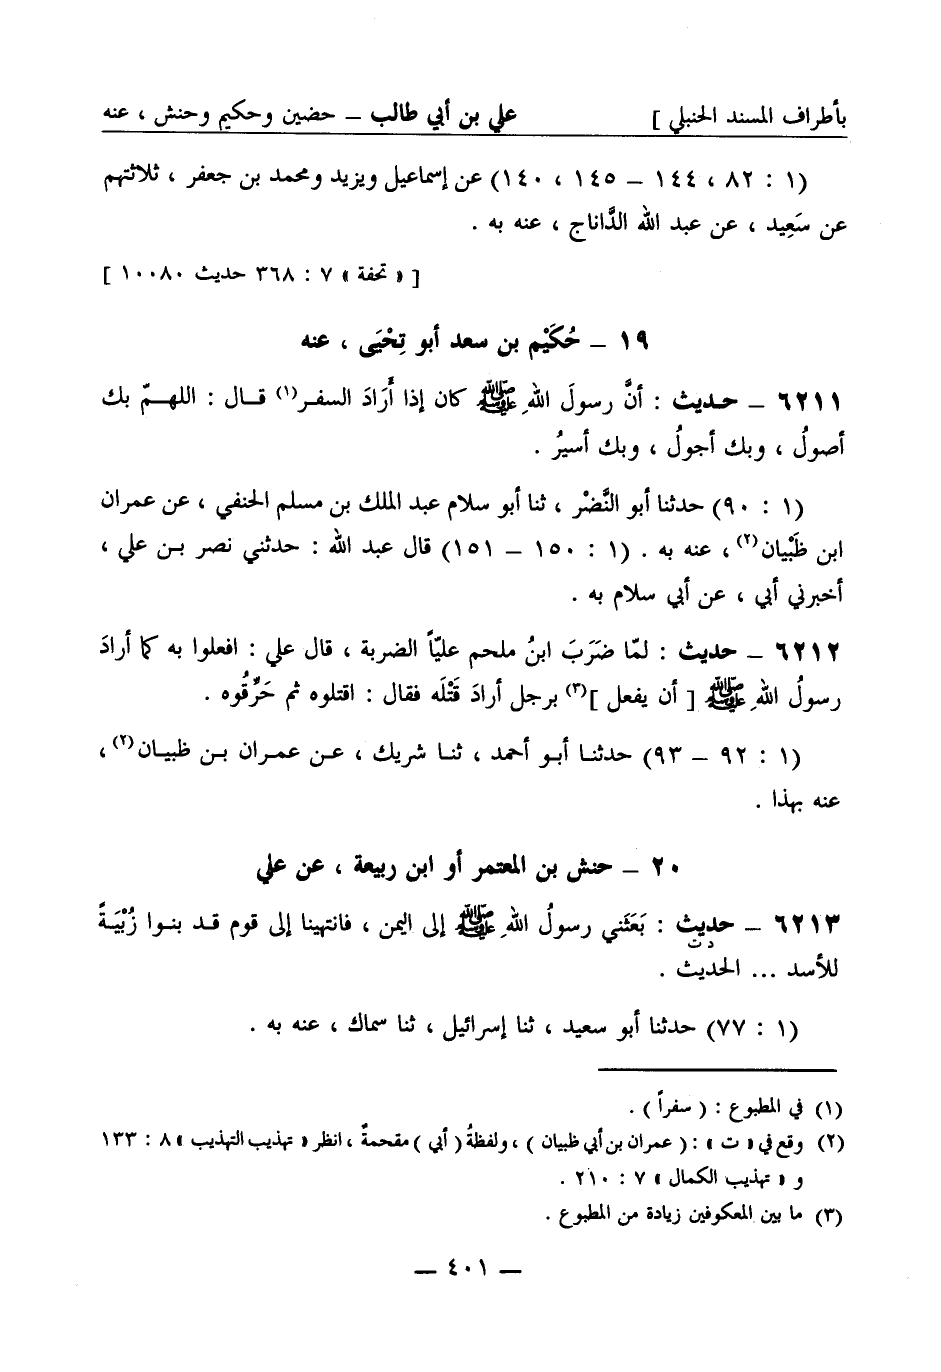 بأطراف المسند الحنبلي ] علي بن أبي طالب – حضين وحكيم وحنش ، عنه
(١ : ٨٢ ، ١٤٤ – ١٤٥ ، ١٤٠) عن إسماعيل ويزيد ومحمد بن جعفر ، ثلاثتهم
عن سَعِيد ، عن عبد الله الدَّاناج ، عنه به .
[ « تحفة » ٧ : ٣٦٨ حديث ١٠٠٨٠ ]
١٩ – حُكَيْم بن سعد أبو تِحْيَى ، عنه
٦٢١١ – حديث : أنَّ رسولَ اللهِ ﷺ كان إذا أَرَادَ السفر(١) قال : اللهمّ بك
أصولُ ، وبك أجولُ ، وبك أسيرُ .
(١ : ٩٠) حدثنا أبو النَّضْر ، ثنا أبو سلام عبد الملك بن مسلم الحنفي ، عن عمران
ابن ظَبْيان(٢) ، عنه به . (١ : ١٥٠ – ١٥١) قال عبد الله : حدثني نصر بن علي ،
أخبرني أبي ، عن أبي سلام به .
٦٢١٢ – حديث : لمّا ضَرَبَ ابنُ ملحم عليّاً الضربة ، قال علي : افعلوا به كما أرادَ
رسولُ اللهِ ﷺ [ أن يفعل ](٣) برجل أرادَ قَتْلَه فقال : اقتلوه ثم حَرِّقُوه .
(١ : ٩٢ – ٩٣) حدثنا أبو أحمد ، ثنا شريك ، عن عمران بن ظبيان(٢) ،
عنه بهذا .
٢٠ – حنش بن المعتمر أو ابن ربيعة ، عن علي
٦٢١٣ – حديث : بَعَثَني رسولُ اللهِ ﷺ إلى اليمن ، فانتهينا إلى قوم قد بنوا زُبْيَةً
د ت
للأسد ... الحديث .
(١ : ٧٧) حدثنا أبو سعيد ، ثنا إسرائيل ، ثنا سماك ، عنه به .
(١) في المطبوع : ( سفراً ) .
(٢) وقع في « ت » : ( عمران بن أبي ظبيان ) ، ولفظةُ ( أبي ) مقحمةٌ ، انظر « تهذيب التهذيب » ٨ : ١٣٣
و « تهذيب الكمال » ٧ : ٢١٠ .
(٣) ما بين المعكوفين زيادة من المطبوع .
– ٤٠١ –